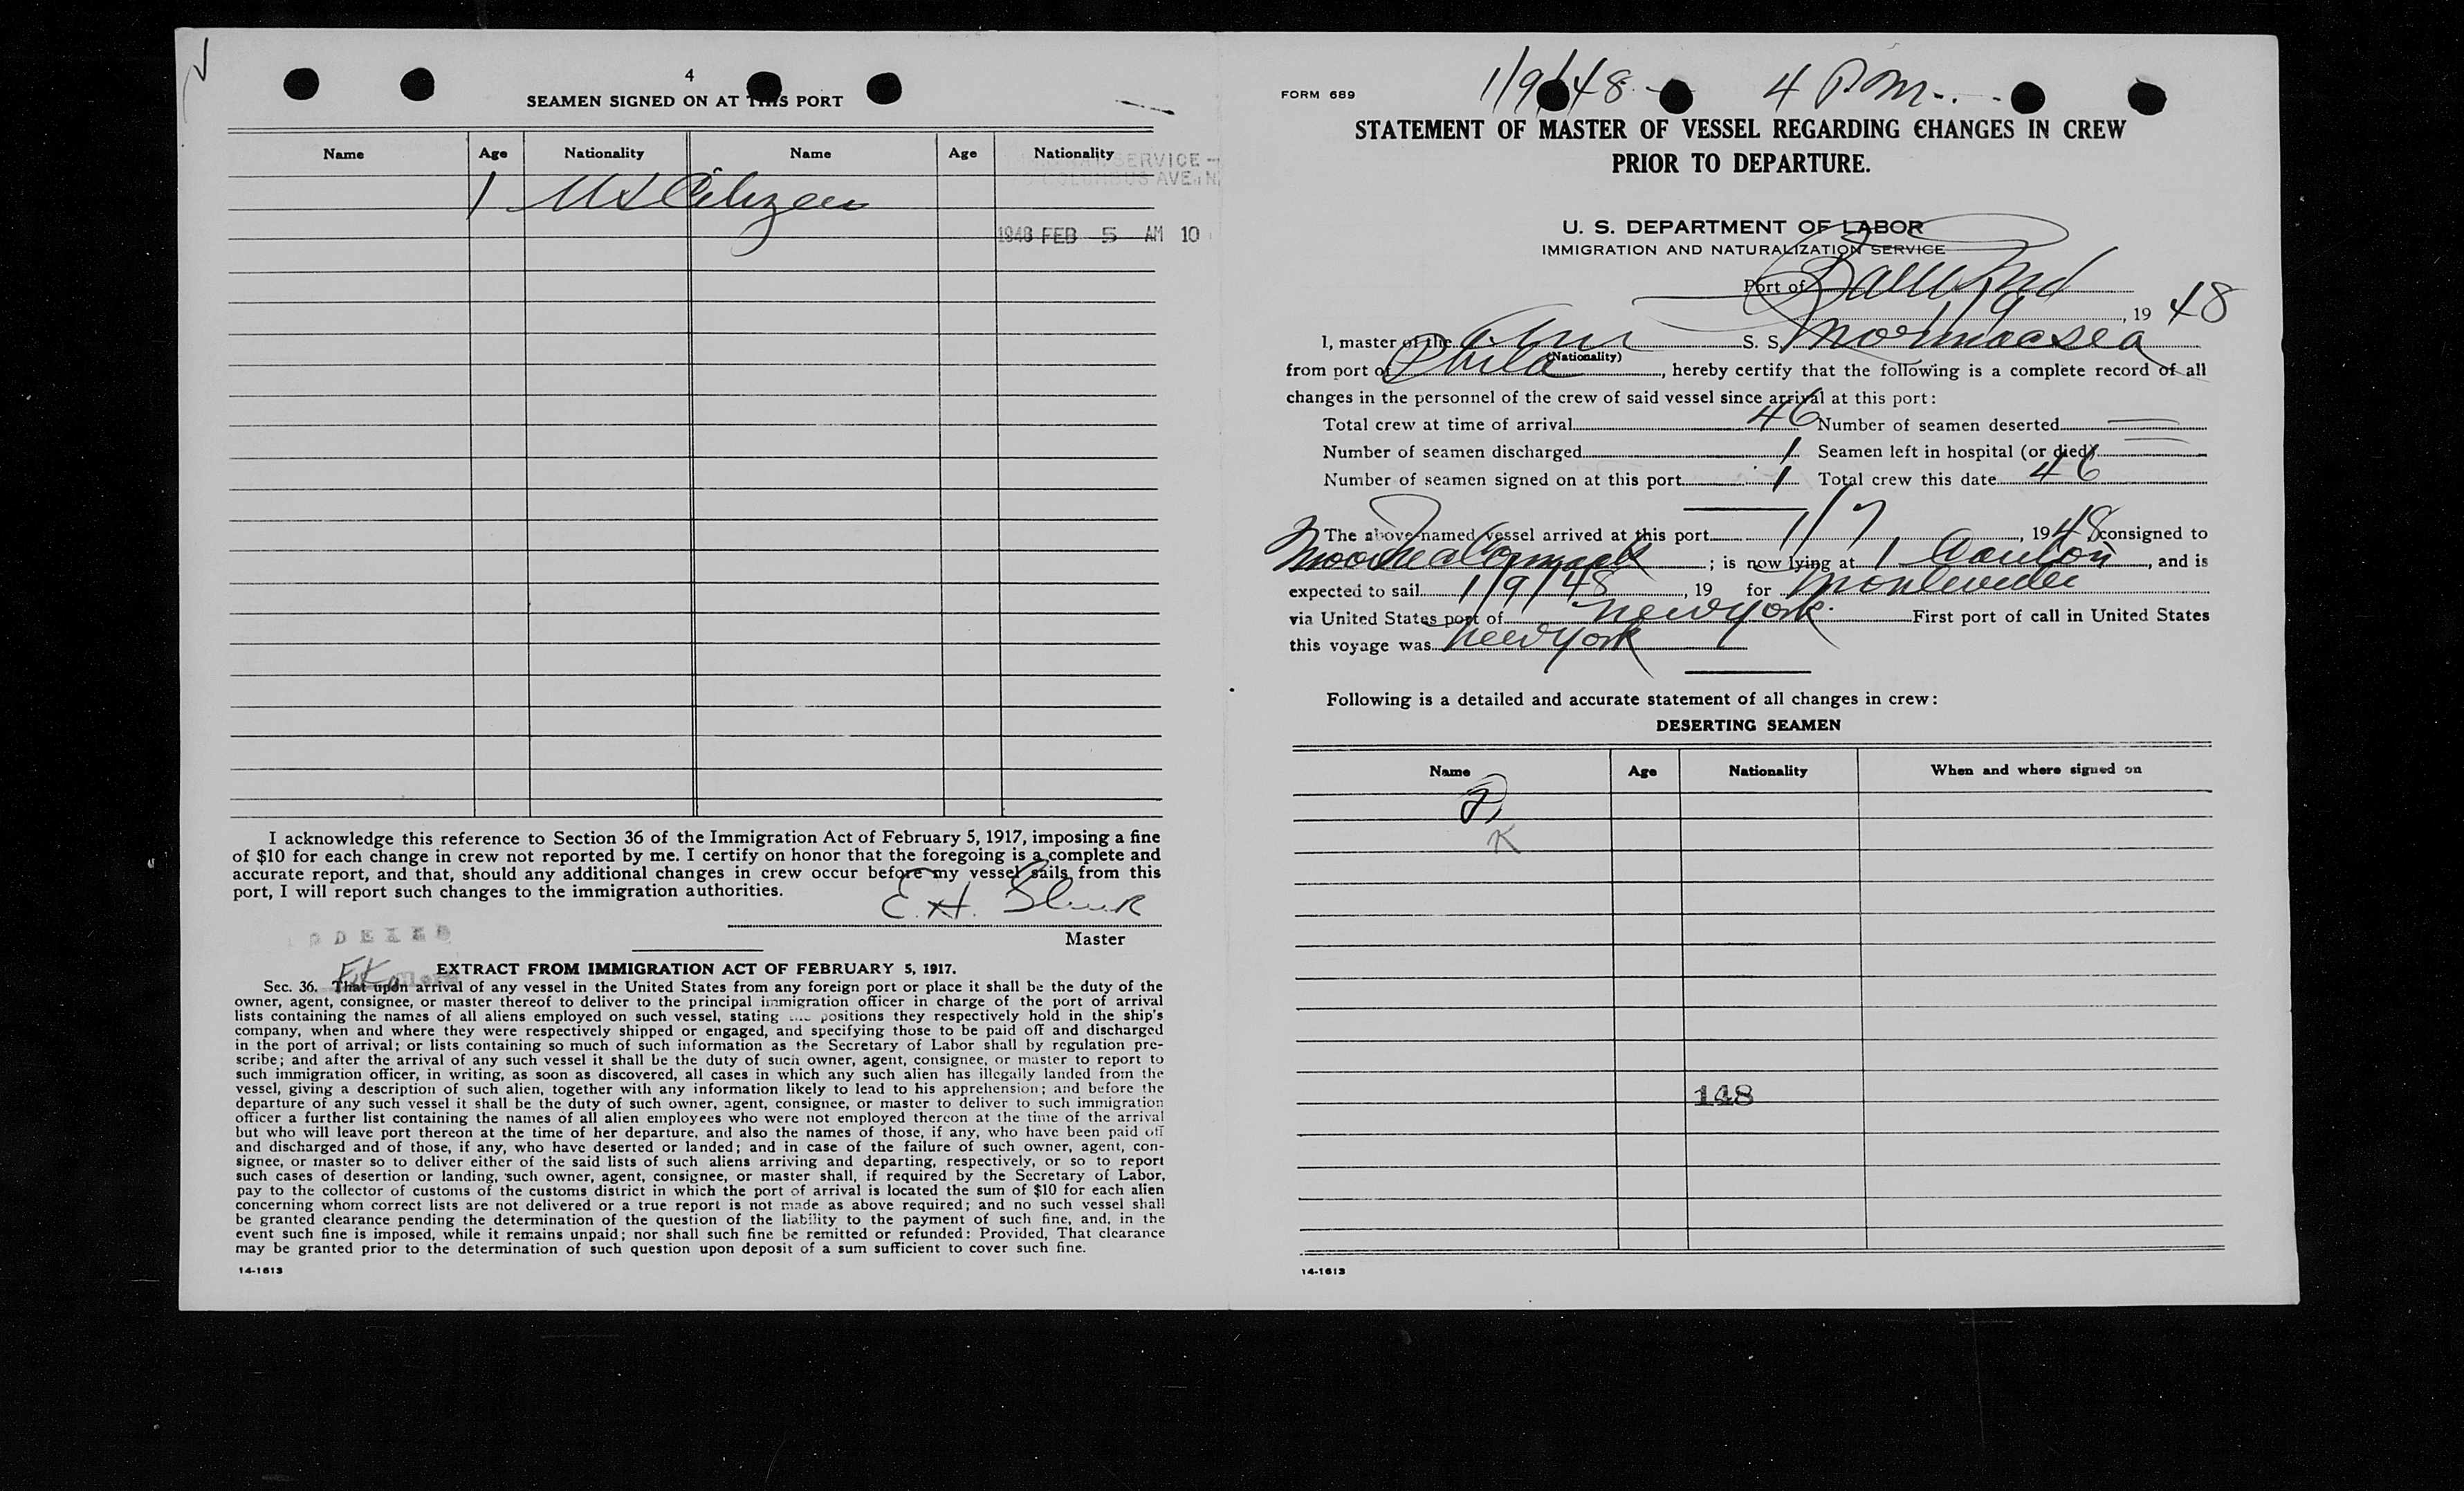 4
SEAMEN SIGNED ON AT THIS PORT
Name Age Nationality Name Age Nationality
SERVICE
COLUMBUS AVE. N.
1 US Citizen
1948 FEB 5 AM 10
I acknowledge this reference to Section 36 of the Immigration Act of February 5, 1917, imposing a fine
of $10 for each change in crew not reported by me. I certify on honor that the foregoing is a complete and
accurate report, and that, should any additional changes in crew occur before my vessel sails from this
port, I will report such changes to the immigration authorities.
E. H.
Master
EXTRACT FROM IMMIGRATION ACT OF FEBRUARY 5, 1917.
Sec. 36. That upon arrival of any vessel in the United States from any foreign port or place it shall be the duty of the
owner, agent, consignee, or master thereof to deliver to the principal immigration officer in charge of the port of arrival
lists containing the names of all aliens employed on such vessel, stating the positions they respectively hold in the ship's
company, when and where they were respectively shipped or engaged, and specifying those to be paid off and discharged
in the port of arrival; or lists containing so much of such information as the Secretary of Labor shall by regulation pre-
scribe; and after the arrival of any such vessel it shall be the duty of such owner, agent, consignee, or master to report to
such immigration officer, in writing, as soon as discovered, all cases in which any such alien has illegally landed from the
vessel, giving a description of such alien, together with any information likely to lead to his apprehension; and before the
departure of any such vessel it shall be the duty of such owner, agent, consignee, or master to deliver to such immigration
officer a further list containing the names of all alien employees who were not employed thereon at the time of the arrival
but who will leave port thereon at the time of her departure, and also the names of those, if any, who have been paid off
and discharged and of those, if any, who have deserted or landed; and in case of the failure of such owner, agent, con-
signee, or master so to deliver either of the said lists of such aliens arriving and departing, respectively, or so to report
such cases of desertion or landing, such owner, agent, consignee, or master shall, if required by the Secretary of Labor,
pay to the collector of customs of the customs district in which the port of arrival is located the sum of $10 for each alien
concerning whom correct lists are not delivered or a true report is not made as above required; and no such vessel shall
be granted clearance pending the determination of the question of the liability to the payment of such fine, and, in the
event such fine is imposed, while it remains unpaid; nor shall such fine be remitted or refunded: Provided, That clearance
may be granted prior to the determination of such question upon deposit of a sum sufficient to cover such fine.
14-1613
FORM 689
1/9/48 - 4 P.M.
STATEMENT OF MASTER OF VESSEL REGARDING CHANGES IN CREW
PRIOR TO DEPARTURE.
U. S. DEPARTMENT OF LABOR
IMMIGRATION AND NATURALIZATION SERVICE
Port of Balto Md
1/9, 19 48
I, master of the Am S. S. Mormacsea
(Nationality)
from port of Phila, hereby certify that the following is a complete record of all
changes in the personnel of the crew of said vessel since arrival at this port:
Total crew at time of arrival 46 Number of seamen deserted
Number of seamen discharged 1 Seamen left in hospital (or died)
Number of seamen signed on at this port 1 Total crew this date 46
The above named vessel arrived at this port 1/7, 1948, consigned to
Moore McCormack; is now lying at 1 Canton, and is
expected to sail 1/9/48, 19 for Montevideo
via United States port of New York. First port of call in United States
this voyage was New York
Following is a detailed and accurate statement of all changes in crew:
DESERTING SEAMEN
Name Age Nationality When and where signed on
K
148
14-1613